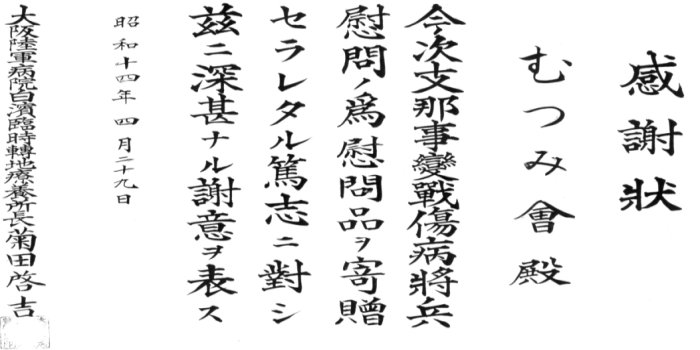 感謝狀
むつみ會殿
今次支那事變戰傷病將兵
慰問ノ爲慰問品ヲ寄贈
セラレタル篤志ニ對シ
玆ニ深甚ナル謝意ヲ表ス
昭和十四年四月二十九日
大阪陸軍病院白濱臨時轉地療養所長菊田啓吉